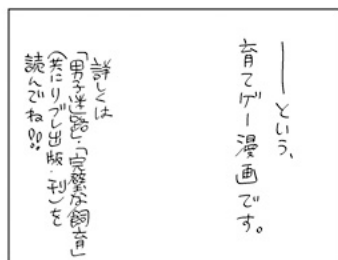 ――という、
育てゲー漫画です。
詳しくは
「男子迷路」・「完璧な飼育」
(共にリブレ出版・刊)を
読んでね!!